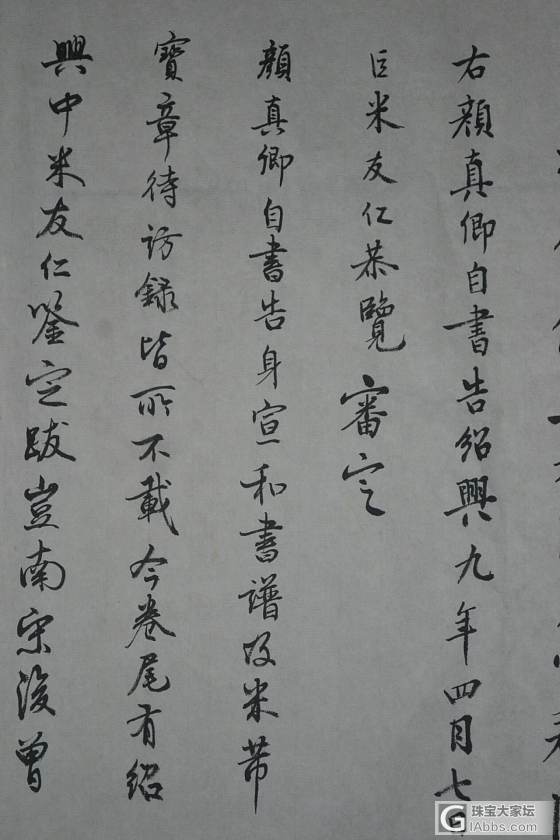 右顔真卿自書告紹興九年四月七日
臣米友仁恭覽審定
顔真卿自書告身宣和書譜及米芾
寶章待訪錄皆所不載今卷尾有紹
興中米友仁鑒定跋豈南宋後曾
珠宝大家坛
iAbbs.com